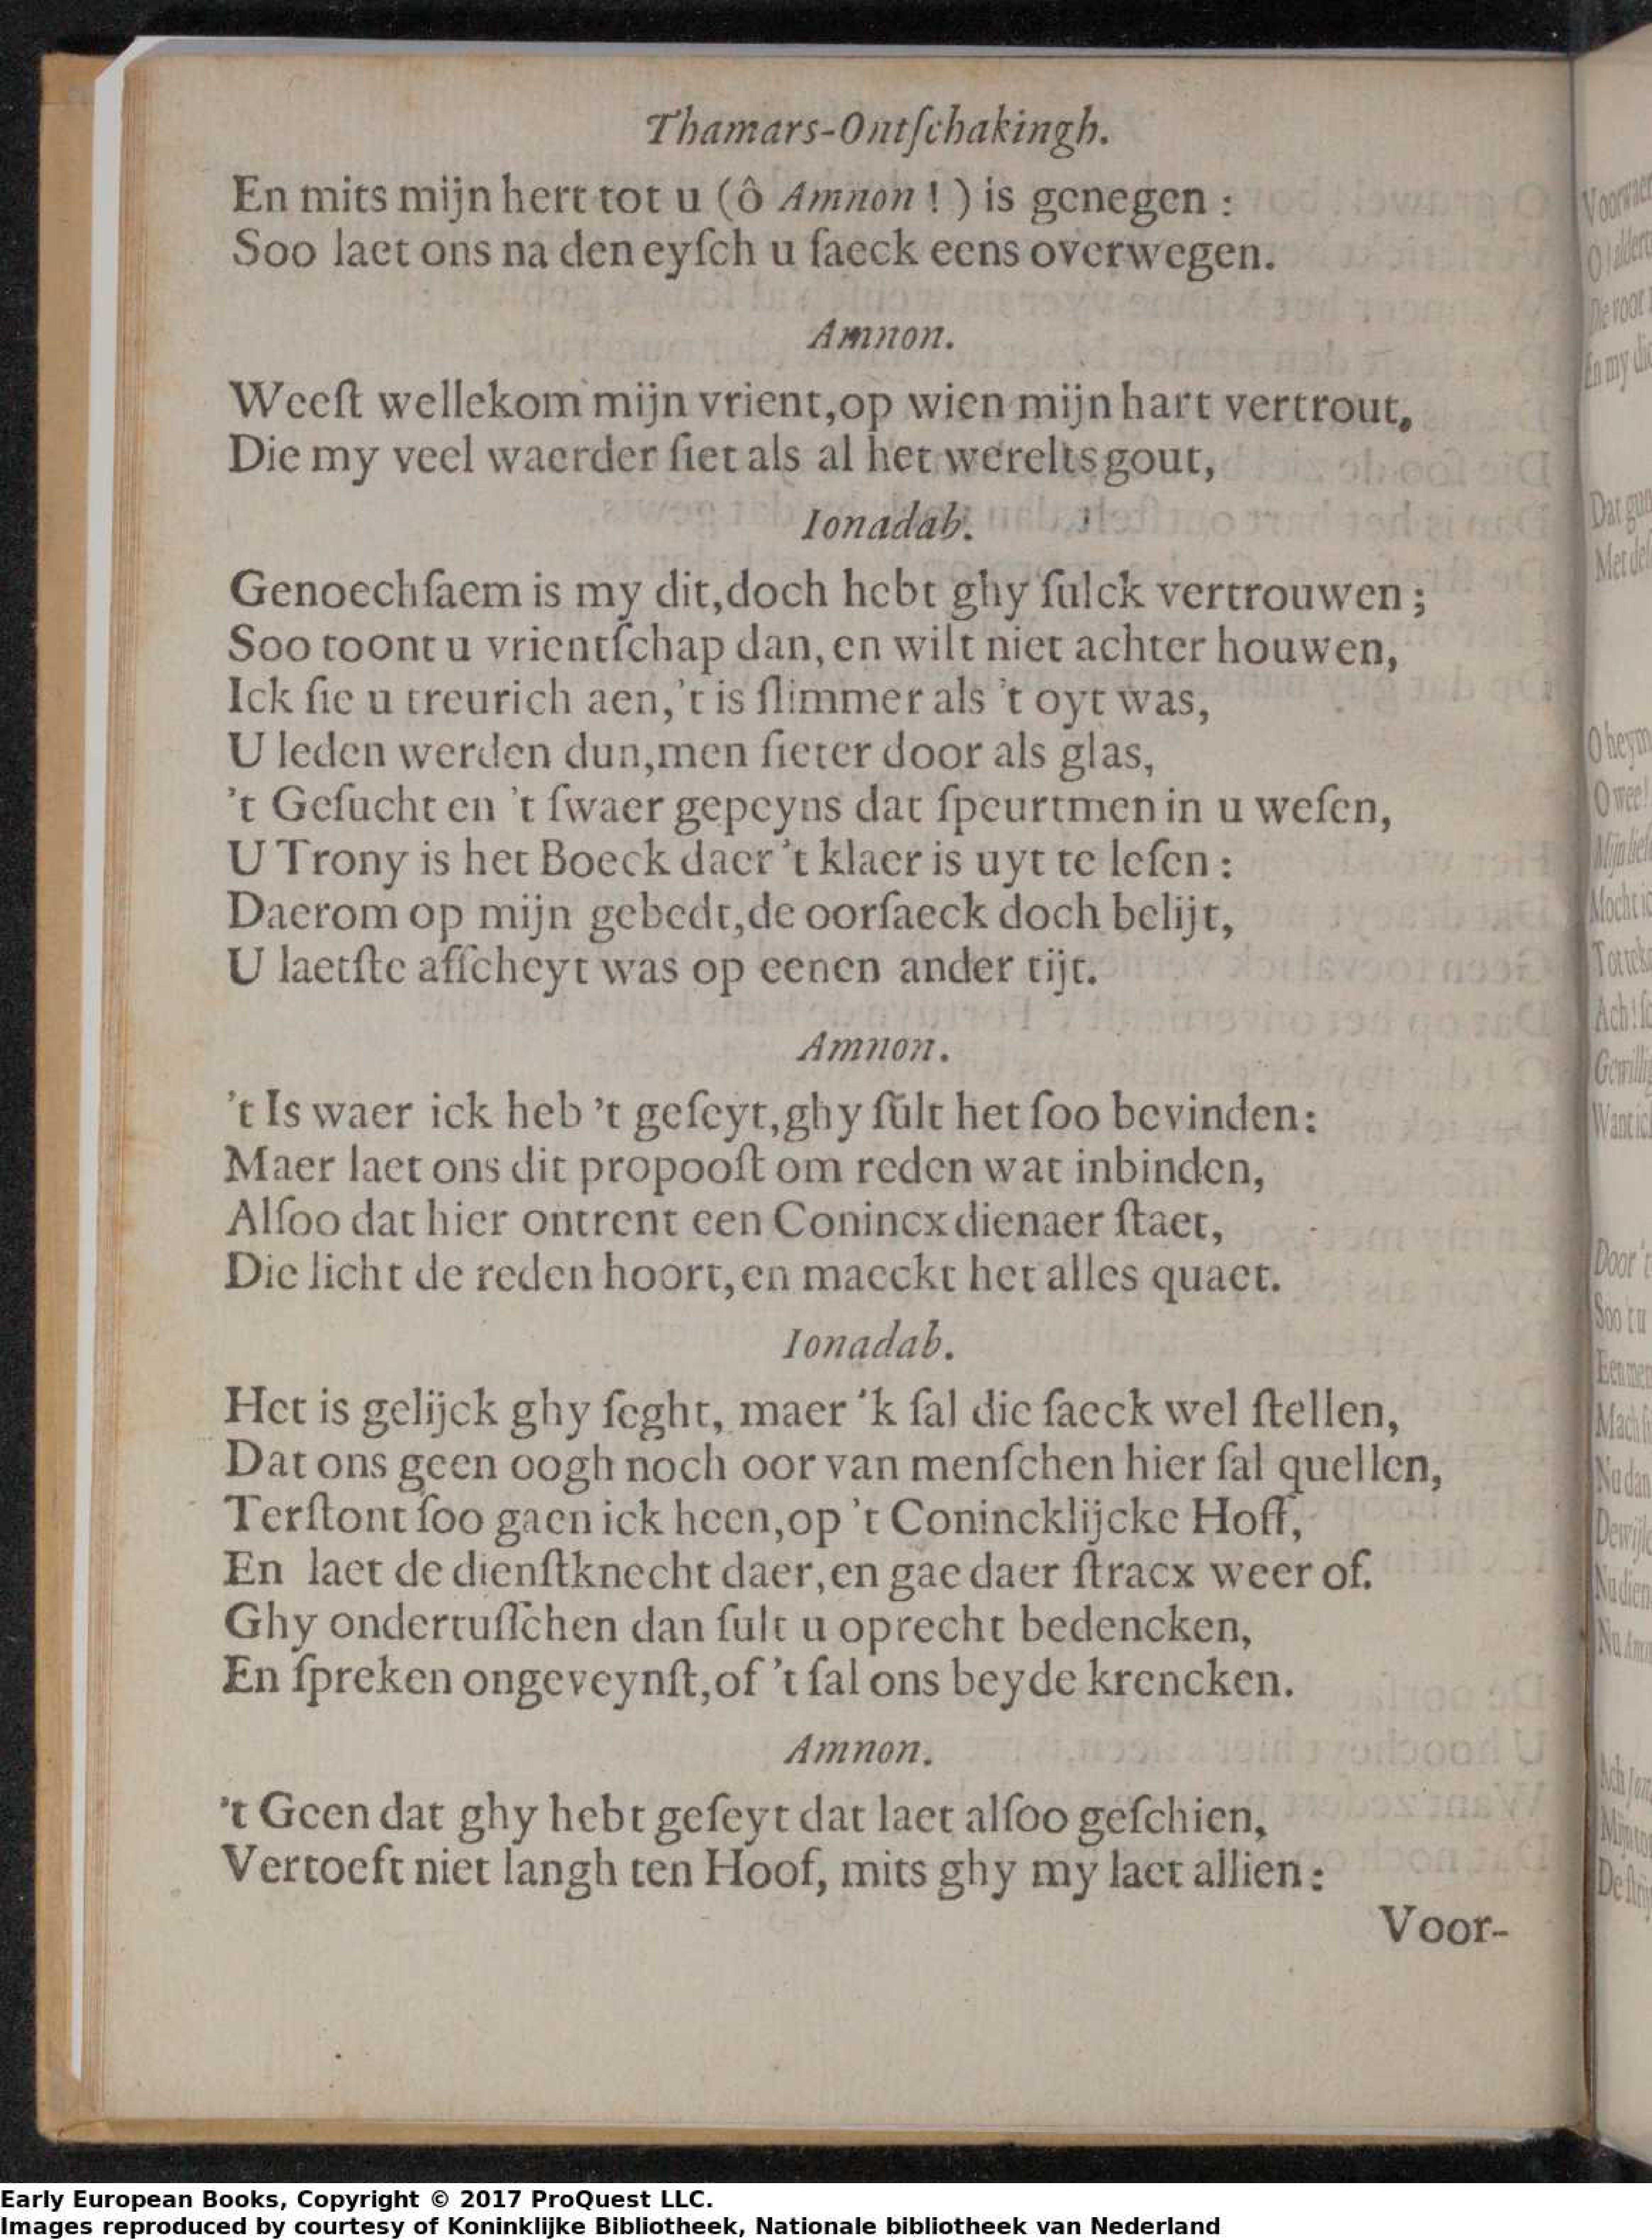 Thamars-Ontſchakingh.
En mits mijn hert tot u (ô Amnon ! ) is genegen :
Soo laet ons na den eyſch u ſaeck eens overwegen.
Amnon.
Weeſt wellekom mijn vrient, op wien mijn hart vertrout,
Die my veel waerder ſiet als al het werelts gout,
Ionadab.
Genoechſaem is my dit, doch hebt ghy ſulck vertrouwen ;
Soo toont u vrientſchap dan, en wilt niet achter houwen,
Ick ſie u treurich aen, 't is ſlimmer als 't oyt was,
U leden werden dun, men ſieter door als glas,
't Geſucht en 't ſwaer gepeyns dat ſpeurtmen in u weſen,
U Trony is het Boeck daer 't klaer is uyt te leſen :
Daerom op mijn gebedt, de oorſaeck doch belijt,
U laetſte afſcheyt was op eenen ander tijt.
Amnon.
't Is waer ick heb 't geſeyt, ghy ſult het ſoo bevinden:
Maer laet ons dit propooſt om reden wat inbinden,
Alſoo dat hier ontrent een Conincx dienaer ſtaet,
Die licht de reden hoort, en maeckt het alles quaet.
Ionadab.
Het is gelijck ghy ſeght, maer 'k ſal die ſaeck wel ſtellen,
Dat ons geen oogh noch oor van menſchen hier ſal quellen,
Terſtont ſoo gaen ick heen, op 't Conincklijcke Hoff,
En laet de dienſtknecht daer, en gae daer ſtracx weer of.
Ghy ondertuſſchen dan ſult u oprecht bedencken,
En ſpreken ongeveynſt, of 't ſal ons beyde krencken.
Amnon.
't Geen dat ghy hebt geſeyt dat laet alſoo geſchien,
Vertoeft niet langh ten Hoof, mits ghy my laet allien :
Voor-
Early European Books, Copyright © 2017 ProQuest LLC.
Images reproduced by courtesy of Koninklijke Bibliotheek, Nationale bibliotheek van Nederland